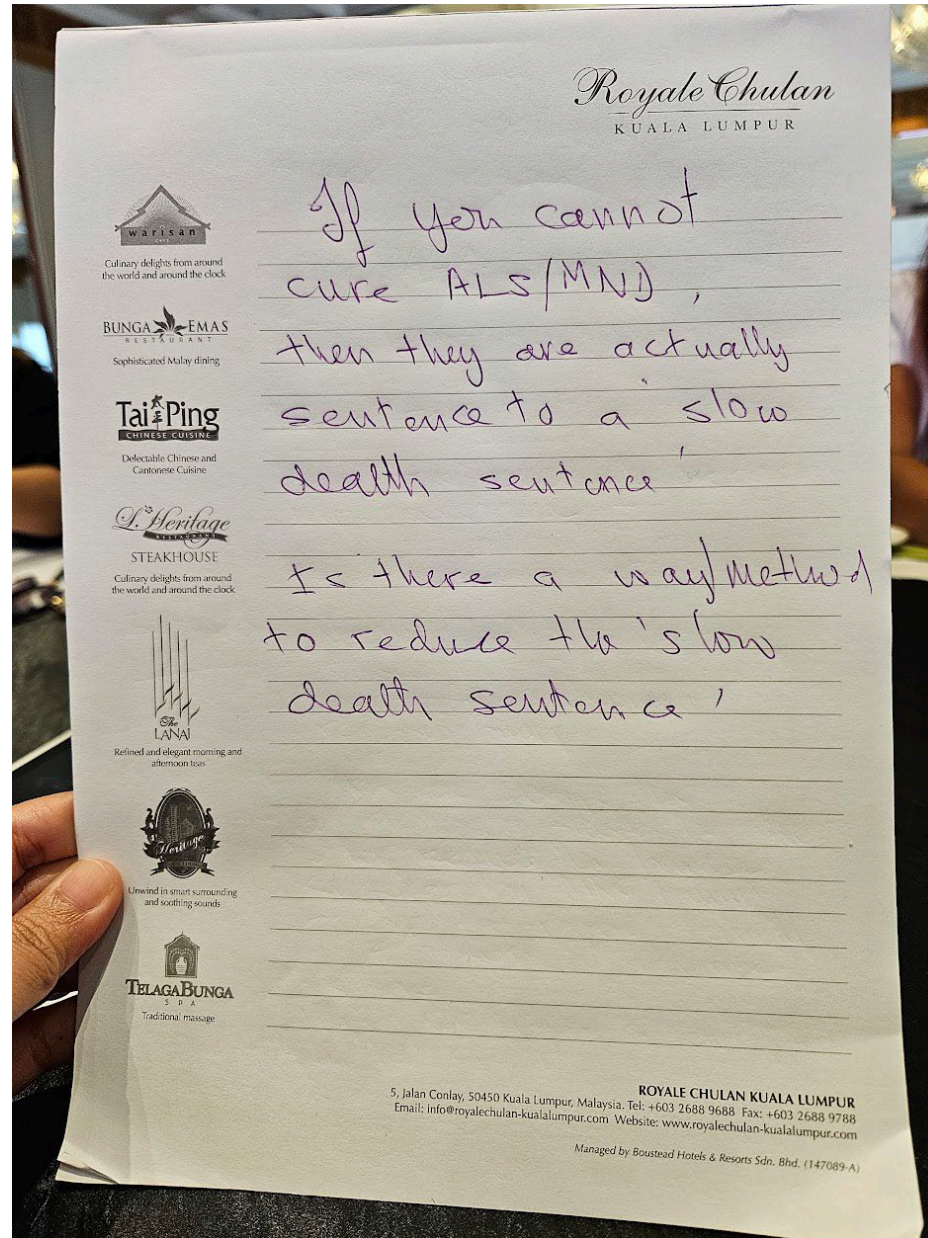 Royale Chulan
KUALA LUMPUR
warisan
CAFE
Culinary delights from around
the world and around the clock
BUNGA EMAS
RESTAURANT
Sophisticated Malay dining
Tai Ping
CHINESE CUISINE
Delectable Chinese and
Cantonese Cuisine
L'Heritage
RESTAURANT
STEAKHOUSE
Culinary delights from around
the world and around the clock
The
LANAI
Refined and elegant morning and
afternoon teas
Heritage
Unwind in smart surrounding
and soothing sounds
TELAGA BUNGA
SPA
Traditional massage
If you cannot
cure ALS/MND,
then they are actually
sentence to a 'slow
death sentence'
Is there a way/method
to reduce the 'slow
death sentence'
ROYALE CHULAN KUALA LUMPUR
5, Jalan Conlay, 50450 Kuala Lumpur, Malaysia. Tel: +603 2688 9688 Fax: +603 2688 9788
Email: info@royalechulan-kualalumpur.com Website: www.royalechulan-kualalumpur.com
Managed by Boustead Hotels & Resorts Sdn. Bhd. (147089-A)